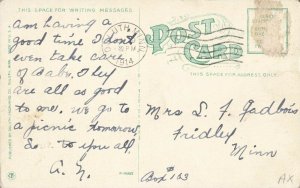 THIS SPACE FOR WRITING MESSAGES.
am having a
good time I don't
even take care
of Baby. They
are all as good
to me. we go to
a picnic tomarow.
So to you all
POST
CARD
1914
THIS SPACE FOR ADDRESS ONLY.
Mrs
Fridley
Minn
Box # 133
AX